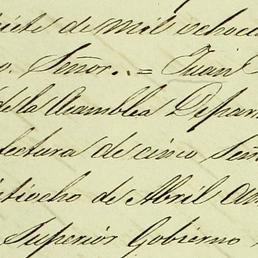 siete de mil ochoci
Señor. = Juan
de la Asamblea Depar
fectura de cinco Seño
tiocho de Abril an
Superior Gobierno